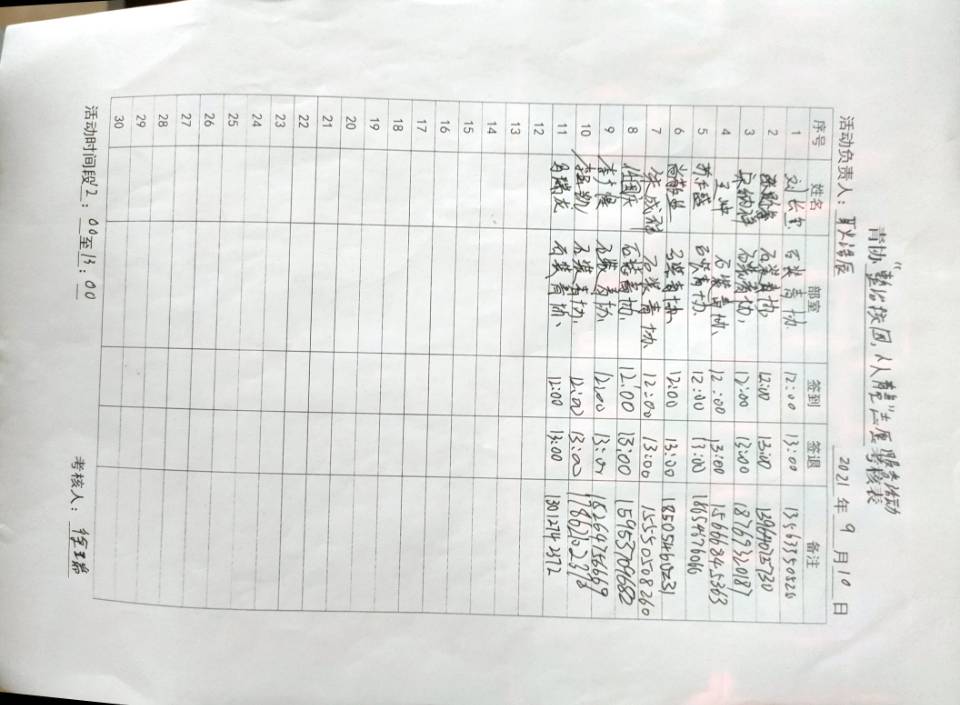 青协"整治校园,人人有责"志愿服务活动考核表
活动负责人: 2021年9月10日
序号 姓名 部室 签到 签退 备注
1 刘长宝 石装青协 12:00 13:00 13563350526
2 石装青协 12:00 13:00
3 宋纳福 石装青协 12:00 13:00 187693320187
4 王迪 石装青协 12:00 13:00 15666845363
5 石装青协 12:00 13:00 18654676060
6 尚敬业 石装青协 12:00 13:00 18505460231
7 张成福 石装青协 12:00 13:00 15550508260
8 任国庆 石装青协 12:00 13:00 15955709682
9 石装青协 12:00 13:00 18264975669
10 石装青协 12:00 13:00 17862102378
11 马瑞龙 石装青协 12:00 13:00 13012742372
12
13
14
15
16
17
18
19
20
21
22
23
24
25
26
27
28
29
30
活动时间段12:00至13:00 考核人: